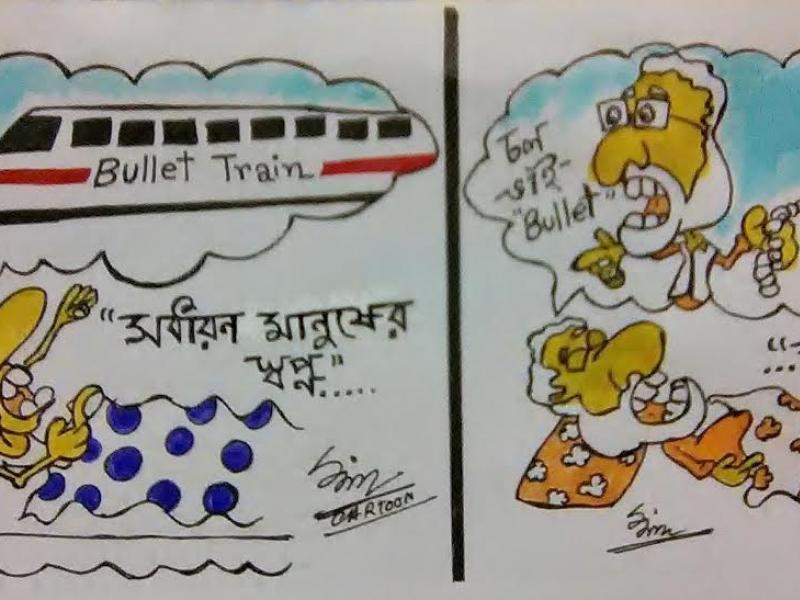 Bullet Train
"সাধারন মানুষের
স্বপ্ন".....
CARTOON
চল
ভাই-
"Bullet"